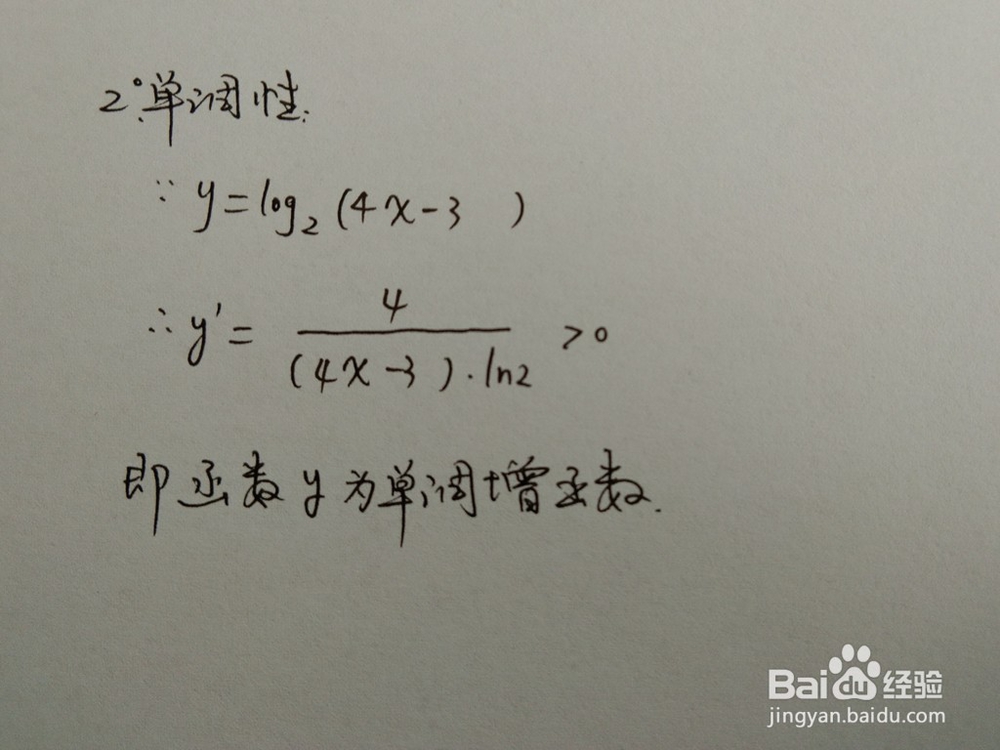 2°.单调性.
∵ y=log₂(4x-3 )
∴ y'= 4/((4x-3)·ln2) >0
即函数y为单调增函数.
Baidu经验
jingyan.baidu.com